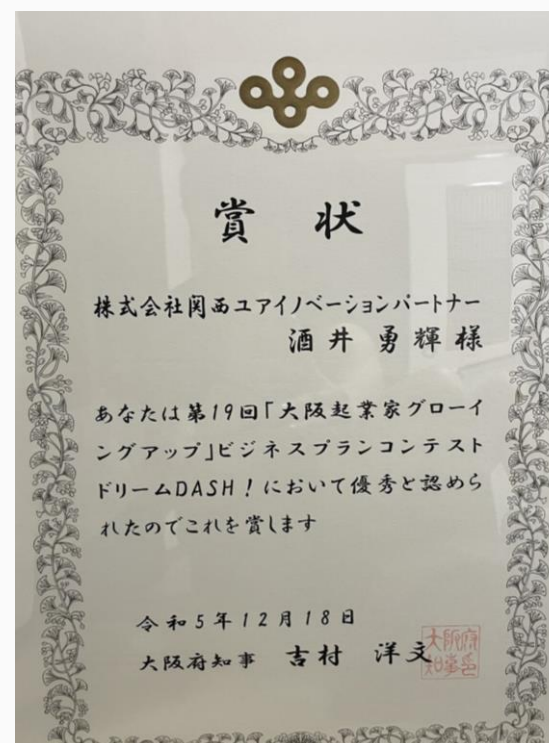 賞状
株式会社関西ユアイノベーションパートナー
酒井 勇輝 様
あなたは第19回「大阪起業家グローイ
ングアップ」ビジネスプランコンテスト
ドリームDASH!において優秀と認めら
れたのでこれを賞します
令和5年12月18日
大阪府知事 吉村 洋文
大阪府
知事印